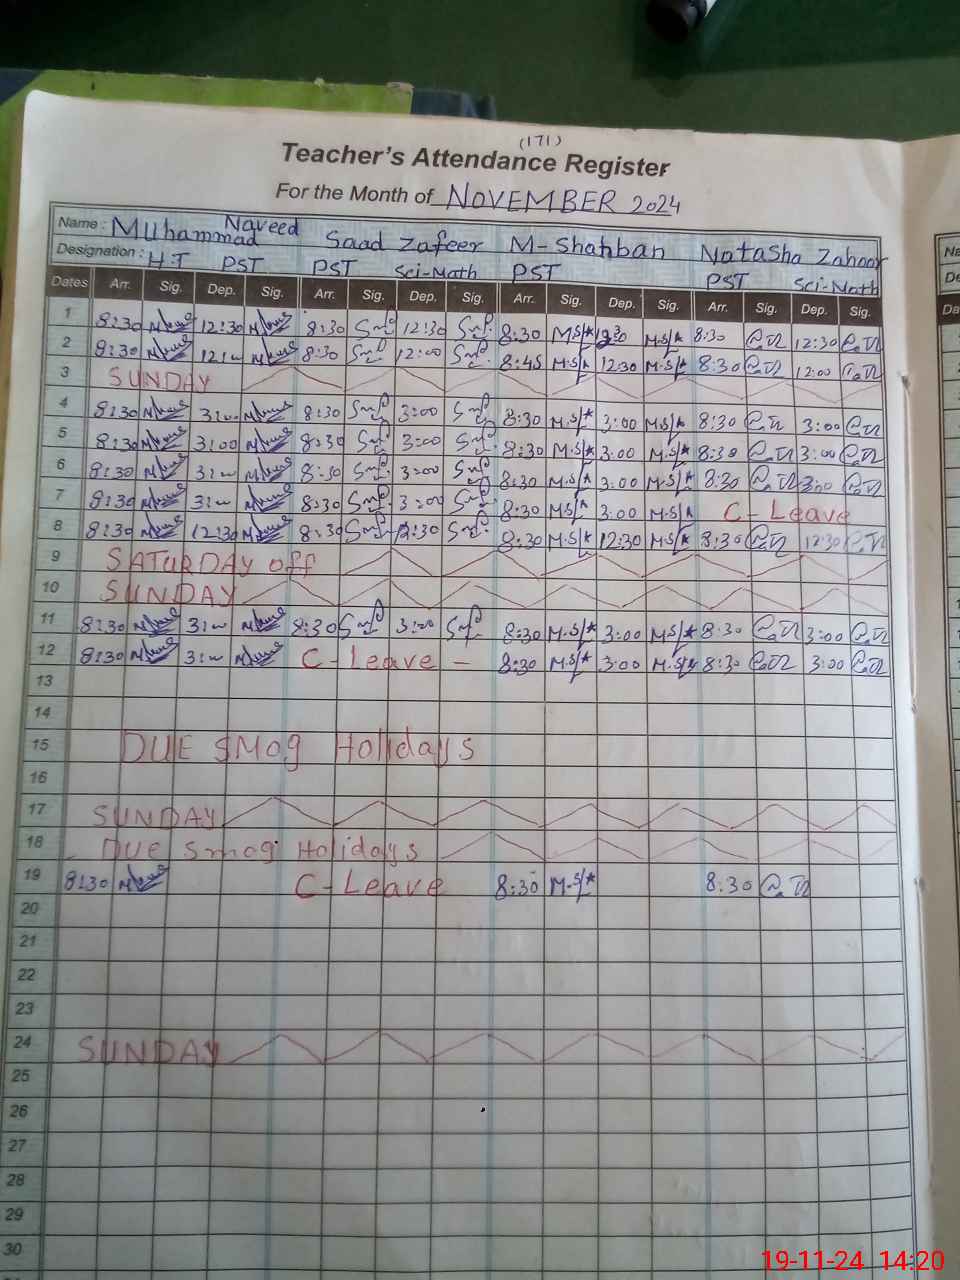 (171)
Teacher's Attendance Register
For the Month of NOVEMBER 2024
Name : Muhammad Naveed Saad Zafeer M-Shahban Natasha Zahoor
Designation : H.T PST PST Sci-Math PST PST Sci-Math
Dates Arr. Sig. Dep. Sig. Arr. Sig. Dep. Sig. Arr. Sig. Dep. Sig. Arr. Sig. Dep. Sig.
1 8:30 12:30 8:30 12:30 8:30 M.S/* M.S/* 8:30 12:30
2 8:30 8:30 12:00 8:45 M.S/* 12:30 M.S/* 8:30 12:00
3 SUNDAY
4 8:30 8:30 3:00 8:30 M.S/* 3:00 M.S/* 8:30 3:00
5 8:30 3:00 8:30 3:00 8:30 M.S/* 3:00 M.S/* 8:30 3:00
6 8:30 8:30 3:00 8:30 M.S/* 3:00 M.S/* 8:30 3:00
7 8:30 8:30 3:00 8:30 M.S/* 3:00 M.S/* C-Leave
8 8:30 12:30 8:30 12:30 8:30 M.S/* 12:30 M.S/* 8:30 12:30
9 SATURDAY off
10 SUNDAY
11 8:30 8:30 3:00 8:30 M.S/* 3:00 M.S/* 8:30 3:00
12 8:30 C-Leave - 8:30 M.S/* 3:00 M.S/* 8:30 3:00
13
14
15 DUE SMOG Holidays
16
17 SUNDAY
18 Due Smog Holidays
19 8:30 C-Leave 8:30 M.S/* 8:30
20
21
22
23
24 SUNDAY
25
26
27
28
29
30
19-11-24 14:20